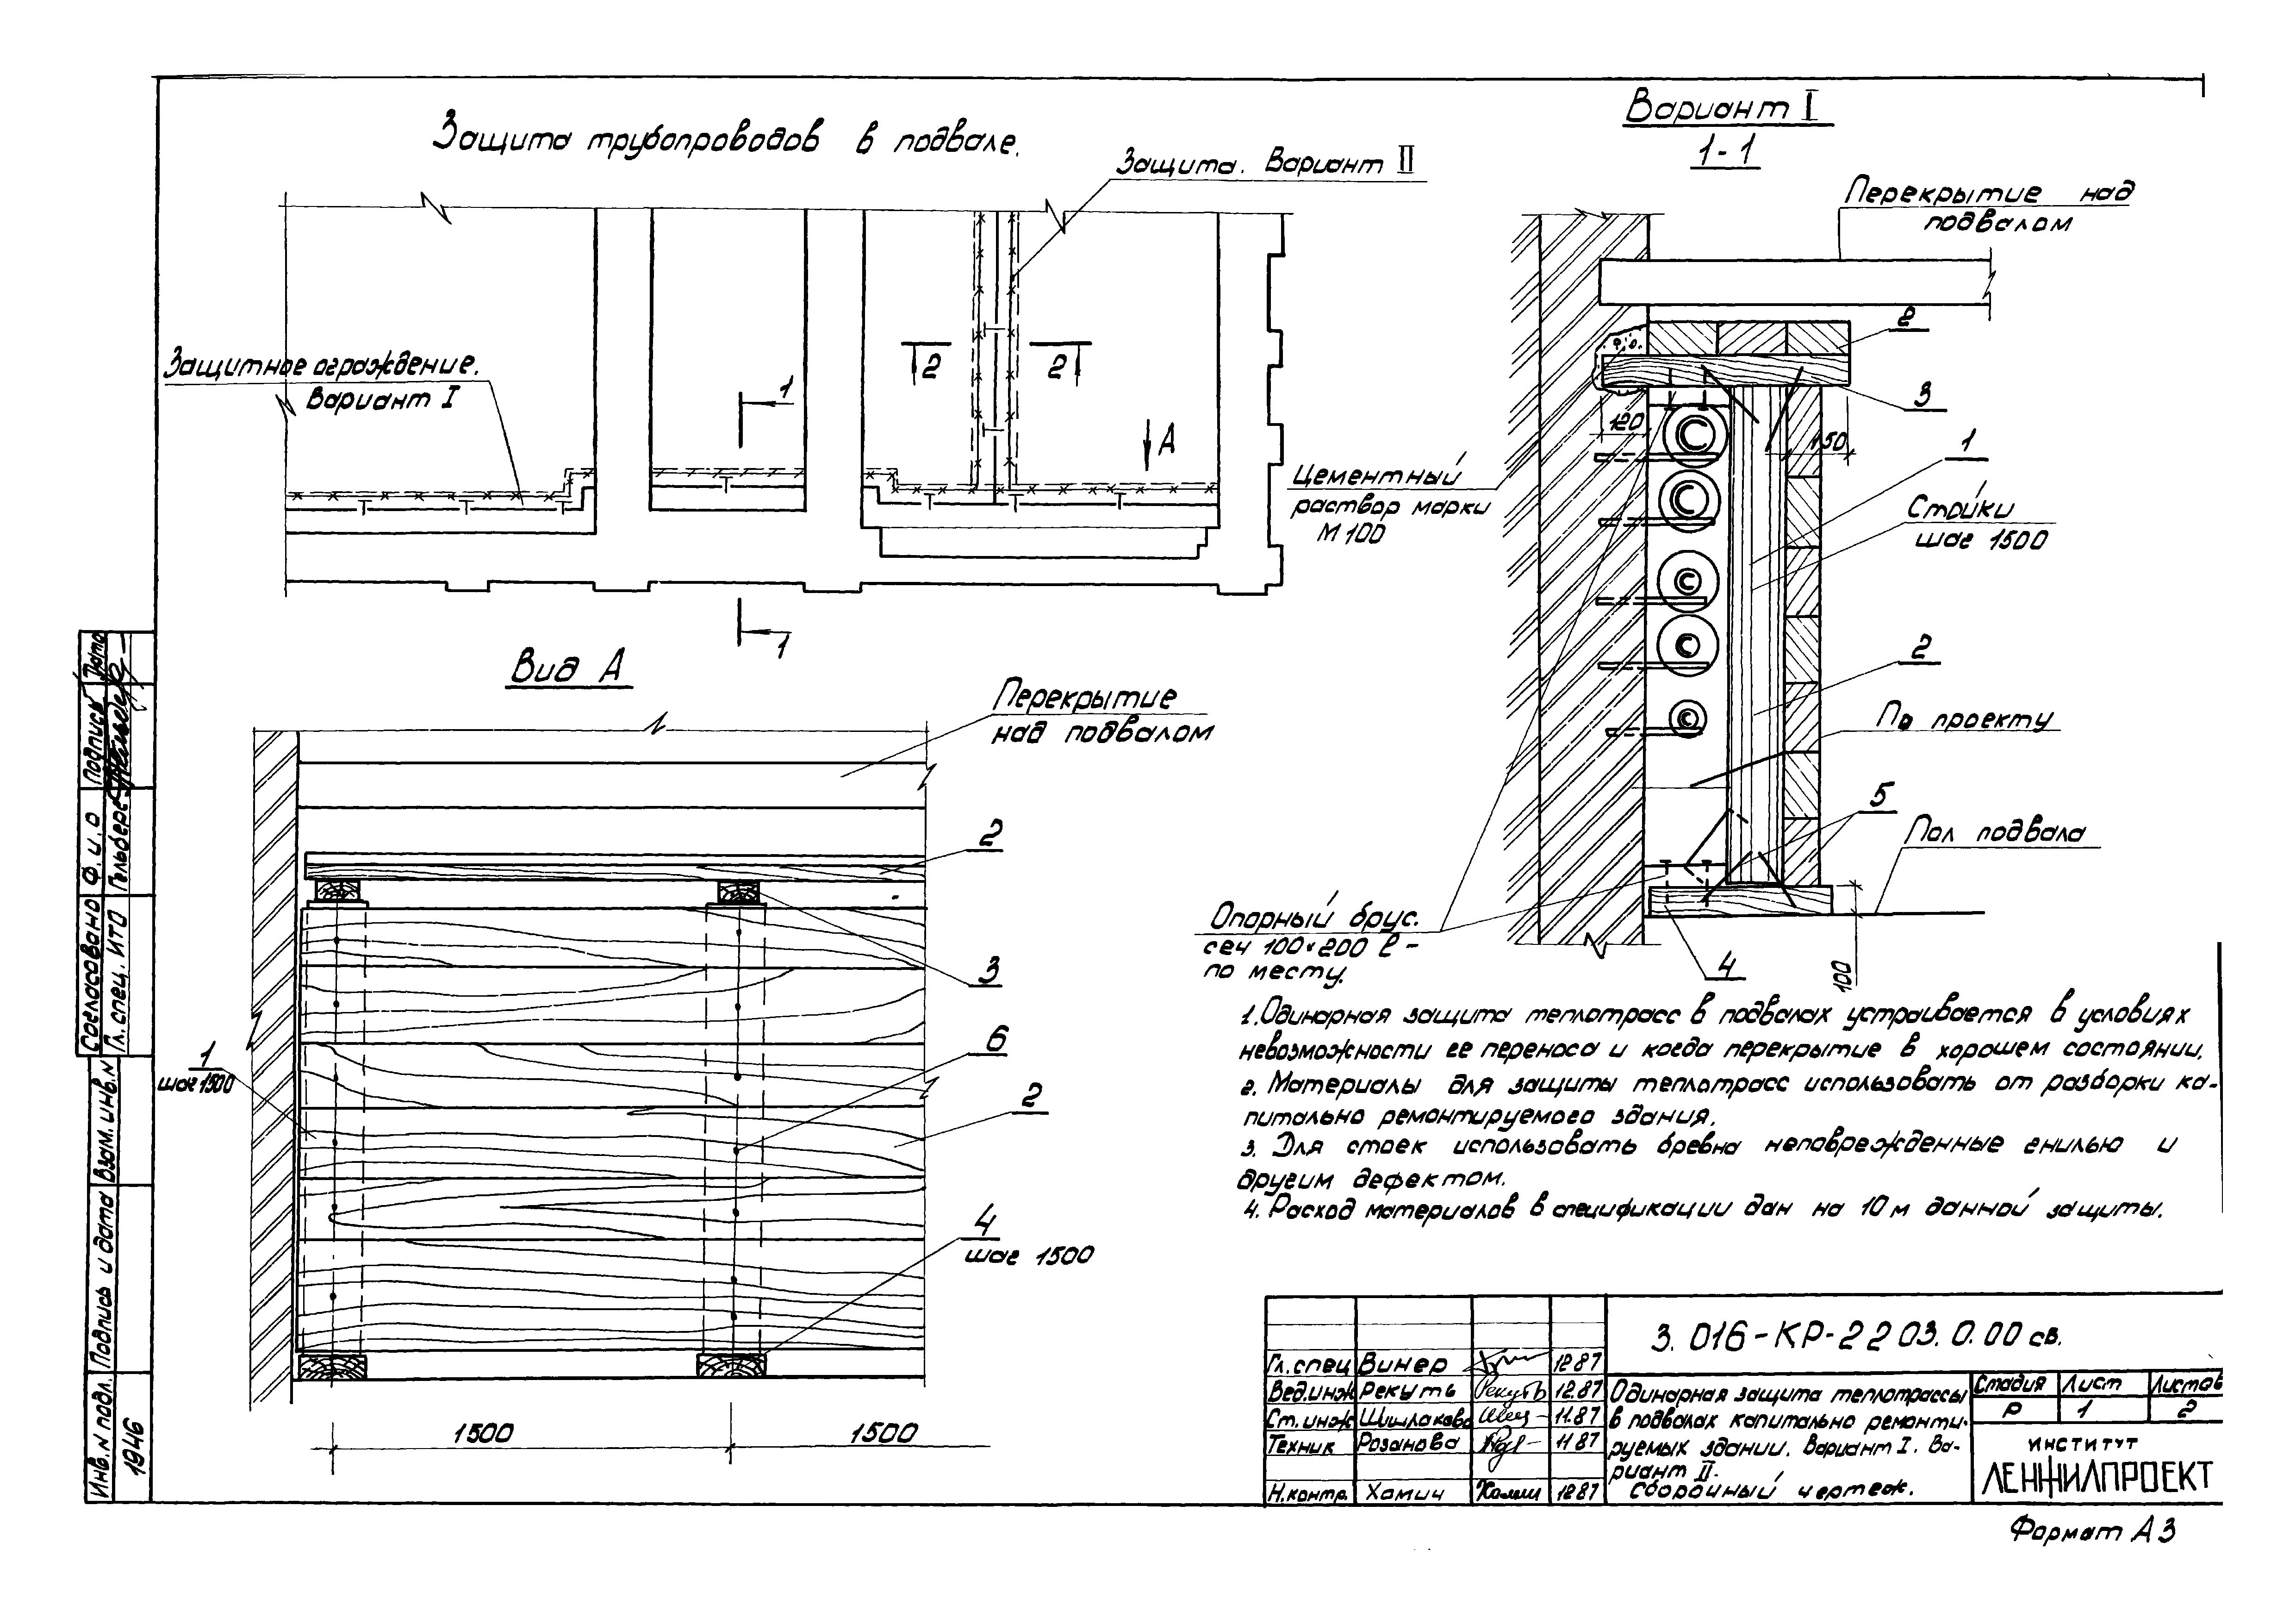 Защита трубопроводов в подвале.
Защита. Вариант II
Защитное ограждение.
Вариант I
1
1
2
2
А
Вариант I
1-1
Перекрытие над
подвалом
2
3
120
150
1
Стойки
шаг 1500
Цементный
раствор марки
М 100
2
По проекту
5
Пол подвала
Опорный брус.
сеч 100×200 ℓ-
по месту.
4
100
Вид А
Перекрытие
над подвалом
2
3
6
1
шаг 1500
2
4
шаг 1500
1500
1500
1. Одинарная защита теплотрасс в подвалах устраивается в условиях
невозможности ее переноса и когда перекрытие в хорошем состоянии.
2. Материалы для защиты теплотрасс использовать от разборки ка-
питально ремонтируемого здания.
3. Для стоек использовать бревна неповрежденные гнилью и
другим дефектом.
4. Расход материалов в спецификации дан на 10 м данной защиты.
3.016-КР-2203.0.00 св.
Гл.спец Винер 12.87
Вед.инж Рекуть Рекуть 12.87
Ст.инж Шишлакова 11.87
Техник Розанова 11 87
Н.контр. Хамич 12 87
Одинарная защита теплотрассы
в подвалах капитально ремонти-
руемых здании. Вариант I. Ва-
риант II.
Сборочный чертеж.
Стадия Лист Листов
Р 1 2
ИНСТИТУТ
ЛЕНЖИЛПРОЕКТ
Формат А3
Согласовано Ф.и.о Подпись Дата
Гл.спец. ИТО
Инв.N подл. Подпись и дата Взам.инв.N
1946